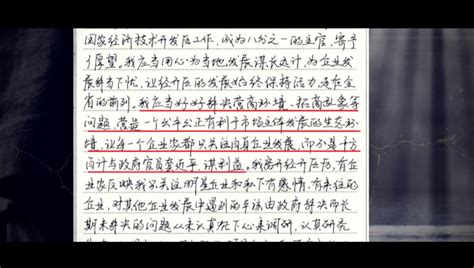 国家经济技术开发区工作，成为八分之一的主官，寄予
了厚望。我应当用心为当地发展谋长远计，为企业发
展解当下忧，让经开区的发展始终保持活力，走在全
省的前列。我应当好好解决营商环境、招商政策等
问题，营造一个公平公正有利于市场主体发展的生态环
境，让每一个企业家都只关注自身企业发展，而不是千方
百计与政府官员套近乎，谋利益。我离开经开区后，有企
业家反映我只关注哪些企业和私下有感情、有来往的
企业，对其他企业发展中遇到的本该由政府解决而长
期未解决的问题从未认真沉下心来调研，认真研究